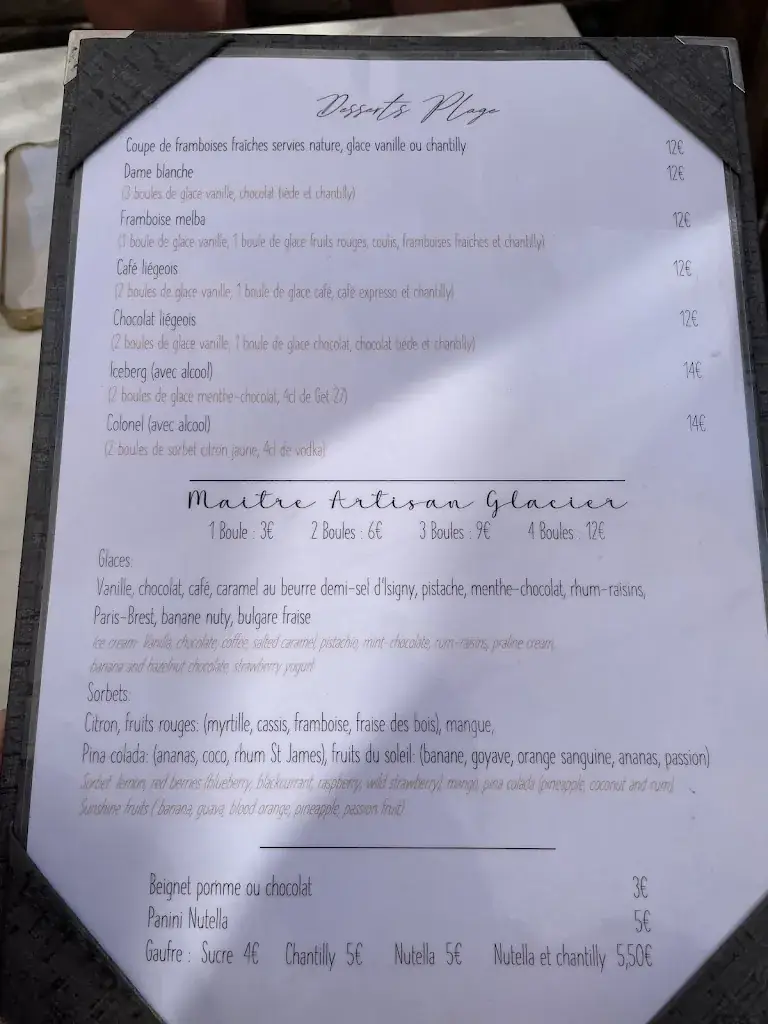 Desserts Plage
Coupe de framboises fraîches servies nature, glace vanille ou chantilly 12€
Dame blanche 12€
(3 boules de glace vanille, chocolat tiède et chantilly)
Framboise melba 12€
(1 boule de glace vanille, 1 boule de glace fruits rouges, coulis, framboises fraîches et chantilly)
Café liégeois 12€
(2 boules de glace vanille, 1 boule de glace café, café expresso et chantilly)
Chocolat liégeois 12€
(2 boules de glace vanille, 1 boule de glace chocolat, chocolat tiède et chantilly)
Iceberg (avec alcool) 14€
(2 boules de glace menthe-chocolat, 4cl de Get 27)
Colonel (avec alcool) 14€
(2 boules de sorbet citron jaune, 4cl de vodka)
Maitre Artisan Glacier
1 Boule : 3€ 2 Boules : 6€ 3 Boules : 9€ 4 Boules : 12€
Glaces:
Vanille, chocolat, café, caramel au beurre demi-sel d'Isigny, pistache, menthe-chocolat, rhum-raisins,
Paris-Brest, banane nuty, bulgare fraise
Ice cream: Vanilla, chocolate, coffee, salted caramel, pistachio, mint-chocolate, rum-raisins, praline cream,
banana and hazelnut chocolate, strawberry yogurt
Sorbets:
Citron, fruits rouges: (myrtille, cassis, framboise, fraise des bois), mangue,
Pina colada: (ananas, coco, rhum St James), fruits du soleil: (banane, goyave, orange sanguine, ananas, passion)
Sorbet: lemon, red berries (blueberry, blackcurrant, raspberry, wild strawberry), mango, pina colada (pineapple, coconut and rum)
Sunshine fruits ( banana, guava, blood orange, pineapple, passion fruit)
Beignet pomme ou chocolat 3€
Panini Nutella 5€
Gaufre : Sucre 4€ Chantilly 5€ Nutella 5€ Nutella et chantilly 5,50€